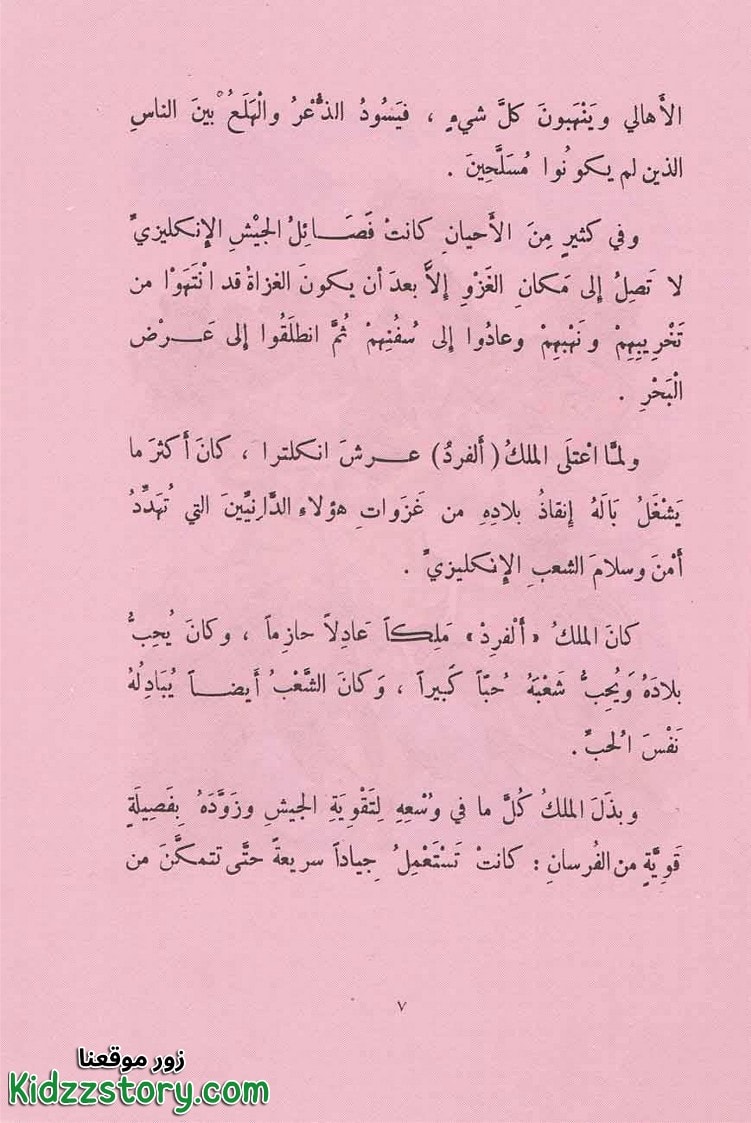 الأَهالي ويَنْهَبونَ كلَّ شيءٍ ، فيَسُودُ الذُّعْرُ والْهَلَعُ بينَ الناسِ
الذين لم يكونُوا مُسَلَّحِينَ .
وفي كثيرٍ مِنَ الأَحيانِ كانتْ فَصَائِلُ الجيْشِ الإِنكليزيِّ
لا تَصِلُ إلى مَكانِ الغَزْوِ إلاَّ بعدَ أن يكونَ الغزاةُ قد انْتَهَوْا من
تَخْرِيبِهِمْ ونَهْبِهِمْ وعادُوا إلى سُفُنِهِمْ ثُمَّ انطلَقُوا إلى عَرْض
الْبَحْرِ .
ولمَّا اعْتلَى الملكُ (ألفردُ) عرشَ انكلترا ، كانَ أكثرَ ما
يَشْغَلُ بَالَهُ إنقاذُ بلادِهِ من غَزَواتِ هؤلاءِ الدَّارنِيِّينَ التي تُهَدِّدُ
أمْنَ وسلامَ الشعبِ الإِنكليزيِّ .
كانَ الملكُ «ألْفرِدْ» مَلِكاً عَادِلاً حازِماً ، وكانَ يُحِبُّ
بلادَهُ وَيُحِبُّ شَعْبَهُ حُبّاً كَبيراً ، وَكانَ الشَّعْبُ أَيضاً يُبَادِلُهُ
نَفْسَ الُحبِّ .
وبذَلَ الملكُ كُلَّ ما في وُسْعِهِ لِتَقْوِيَةِ الجيشِ وزَوَّدَهُ بِفَصِيلَةٍ
قَوِيَّةٍ من الفُرسانِ : كانتْ تَسْتَعْمِلُ جِياداً سريعةً حتَّى تتمكَّنَ من
٧
زور موقعنا
Kidzzstory.com